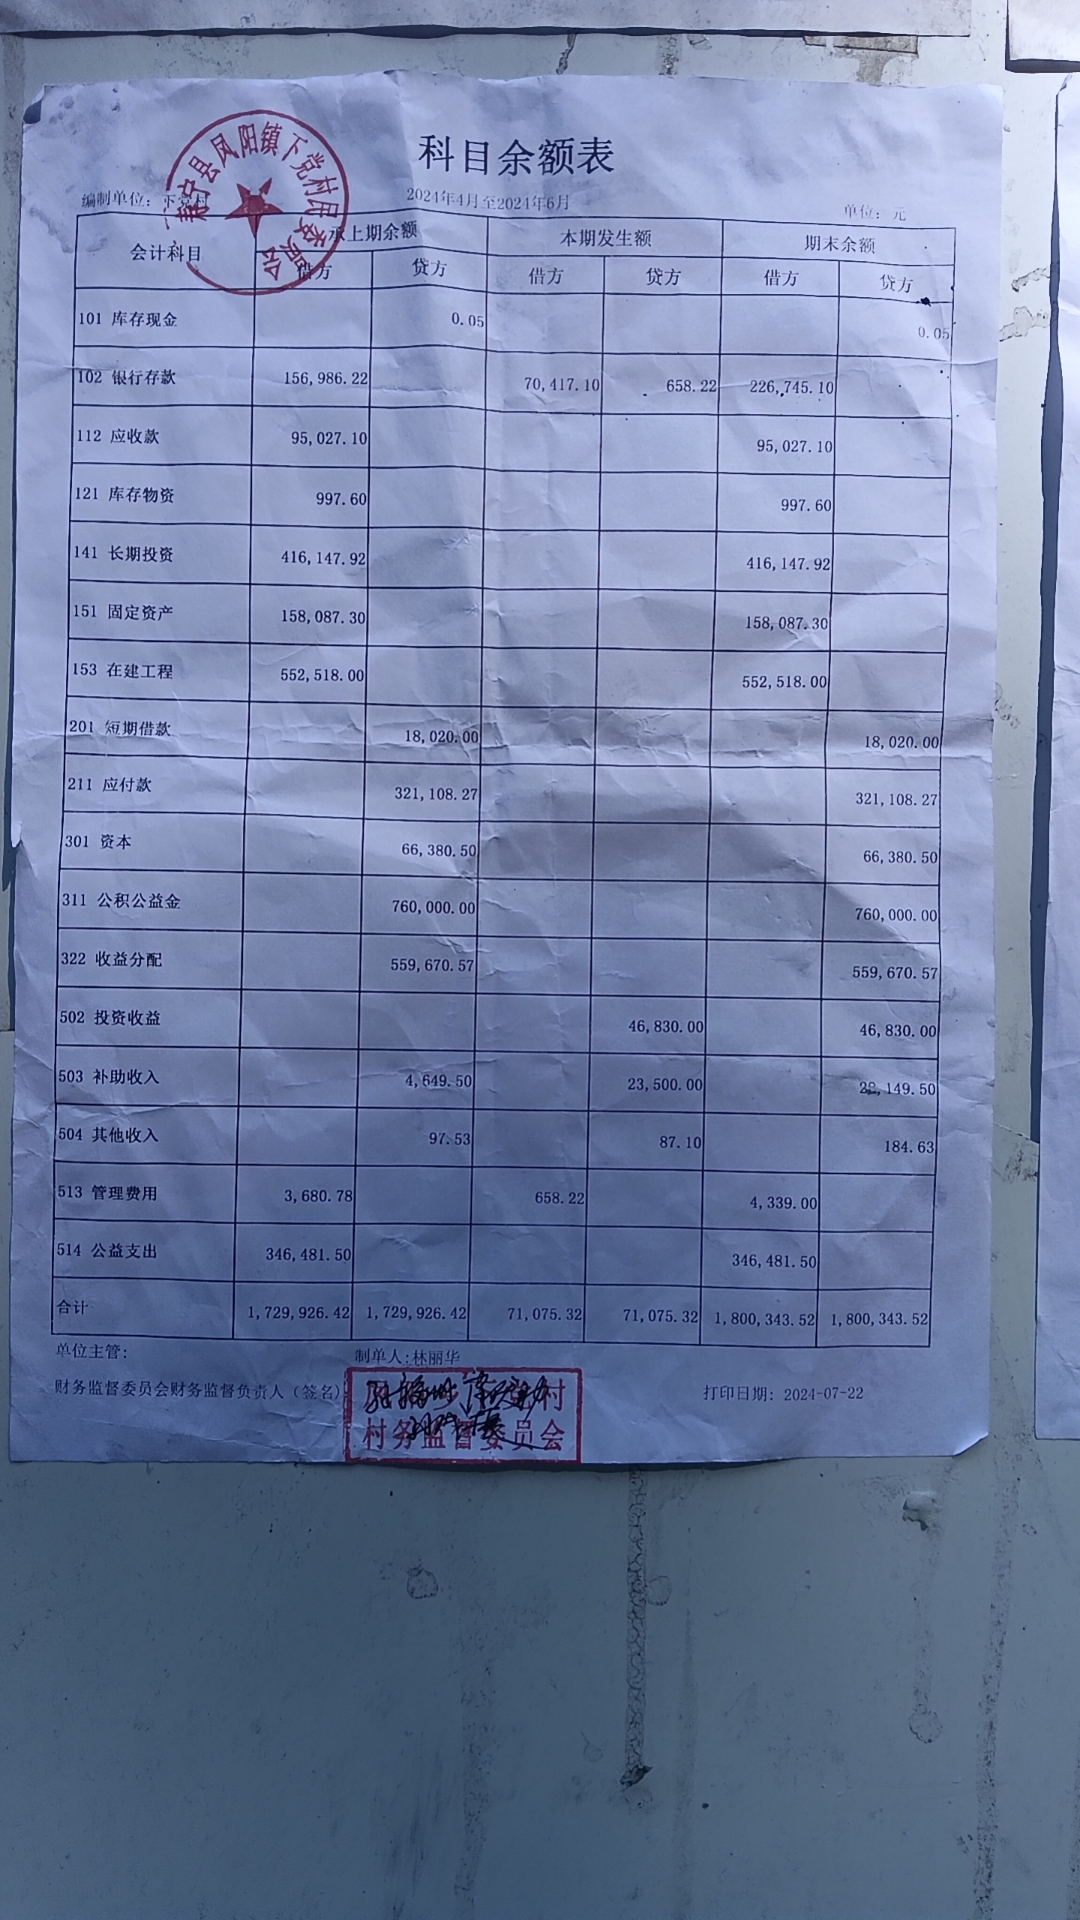 科目余额表
寿宁县凤阳镇下党村民委员会
编制单位：下党村 2024年4月至2024年6月 单位：元
会计科目 承上期余额 本期发生额 期末余额
借方 贷方 借方 贷方 借方 贷方
101 库存现金 0.05 0.05
102 银行存款 156,986.22 70,417.10 658.22 226,745.10
112 应收款 95,027.10 95,027.10
121 库存物资 997.60 997.60
141 长期投资 416,147.92 416,147.92
151 固定资产 158,087.30 158,087.30
153 在建工程 552,518.00 552,518.00
201 短期借款 18,020.00 18,020.00
211 应付款 321,108.27 321,108.27
301 资本 66,380.50 66,380.50
311 公积公益金 760,000.00 760,000.00
322 收益分配 559,670.57 559,670.57
502 投资收益 46,830.00 46,830.00
503 补助收入 4,649.50 23,500.00 28,149.50
504 其他收入 97.53 87.10 184.63
513 管理费用 3,680.78 658.22 4,339.00
514 公益支出 346,481.50 346,481.50
合计 1,729,926.42 1,729,926.42 71,075.32 71,075.32 1,800,343.52 1,800,343.52
单位主管： 制单人:林丽华
财务监督委员会财务监督负责人（签名） 打印日期：2024-07-22
村
村务监督委员会